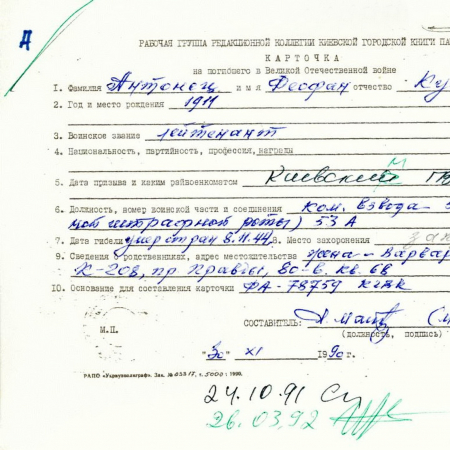 Д
РАБОЧАЯ ГРУППА РЕДАКЦИОННОЙ КОЛЛЕГИИ КИЕВСКОЙ ГОРОДСКОЙ КНИГИ ПА
КАРТОЧКА
на погибшего в Великой Отечественной войне
1. Фамилия Антонец имя Феофан отчество Ку
2. Год и место рождения 1911
3. Воинское звание лейтенант
4. Национальность, партийность, профессия, награды
5. Дата призыва и каким райвоенкоматом Киевский
6. Должность, номер воинской части и соединения ком. взвода-
ной штрафной роты) 53 А
7. Дата гибели умер от ран 8.11.44, 8. Место захоронения зах
9. Сведения о родственниках, адрес местожительства жена - Варвар
К-208, пр. Правды, 80-в, кв. 68
10. Основание для составления карточки ФА-78759 КГВК
СОСТАВИТЕЛЬ:
(должность, подпись)
М.П.
"30" XI 1990г.
РАПО «Укрвузполиграф». Зак. т. 5000 : 1990.
24.10.91
26.03.92